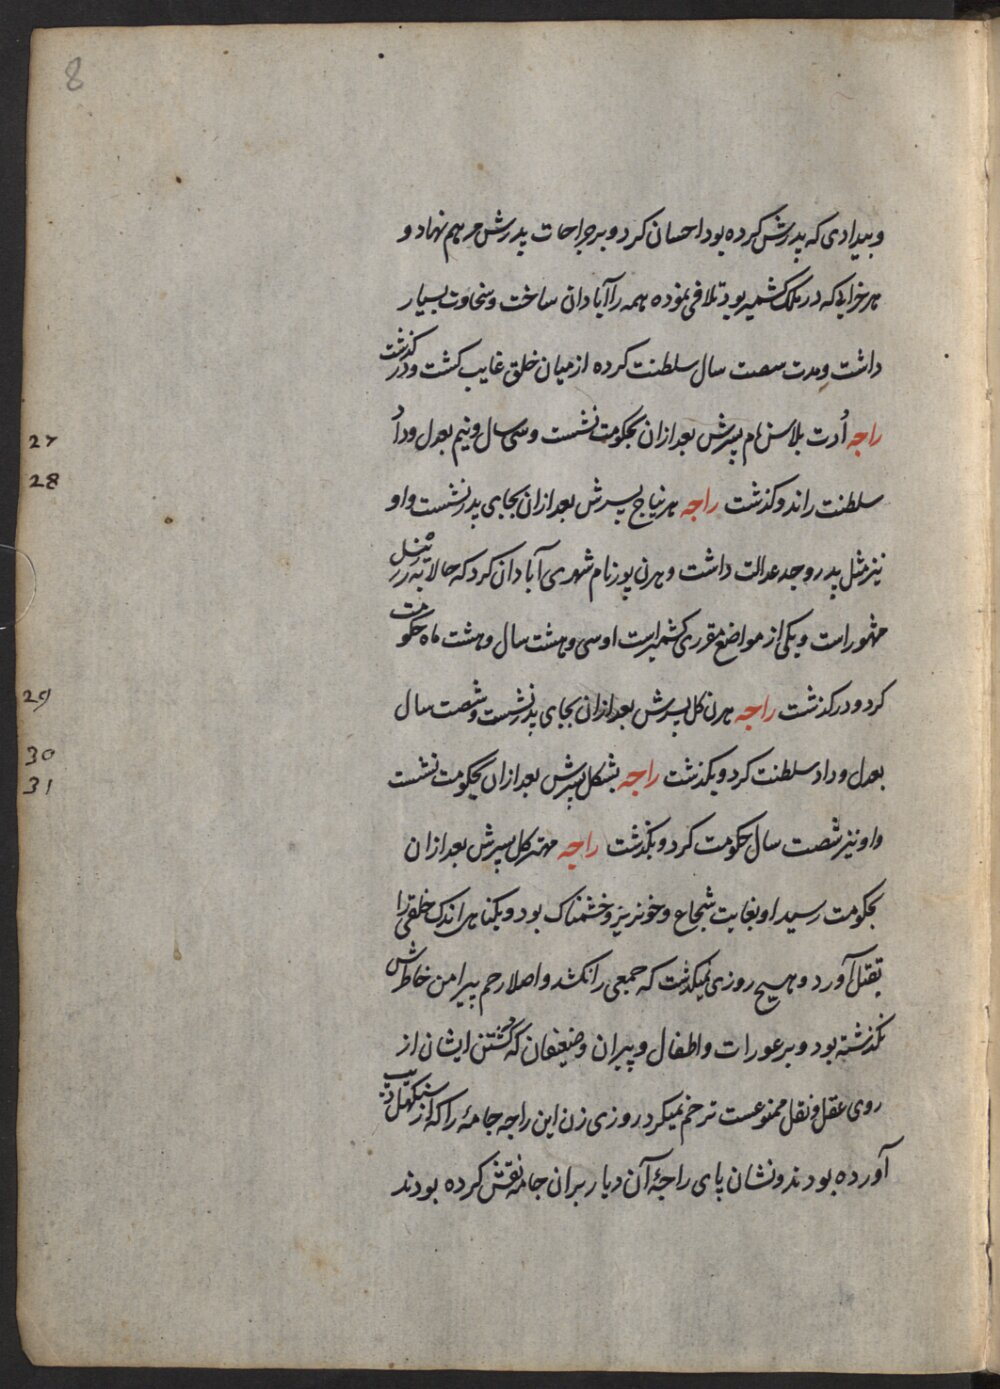 8
و بیدادی که پدرش کرده بود احسان کرد و بر جراحات پدرش مرهم نهاد و
هر خرابی که در ملک کشمیر بود تلافی نموده همه را آبادان ساخت و سخاوت بسیار
داشت و مدت سصت سال سلطنت کرده از میان خلق غایب کشت و در کذشت
27 راجه اُدت بلاسن نام پسرش بعد ازان بحکومت نشست و سی سال و نیم بعدل و داد
28 سلطنت راند و کذشت راجه هرنیاج پسرش بعد ازان بجای پدر نشست و او
نیز مثل پدر و جد عدالت داشت و هرن پور نام شهری آبادان کرد که حالا به رنیل
مشهور است و یکی از مواضع مقرری کشمیر است او سی و هشت سال و هشت ماه حکومت
29 کرد و در کذشت راجه هرن کل پسرش بعد ازان بجای پدر نشست و شصت سال
30 بعدل و داد سلطنت کرد و بکذشت راجه بشکل پسرش بعد ازان بحکومت نشست
31 و او نیز شصت سال حکومت کرد و بکذشت راجه مهتر کل پسرش بعد ازان
بحکومت رسید او بغایت شجاع و خونریز و خشمناک بود و بکناهی اندک خلقی را
بقتل آورد و هیچ روزی نمیکذشت که جمعی را نکشد و اصلا رحم پیرامن خاطرش
نکذشته بود و بر عورات و اطفال و پیران و ضعیفان که کشتن ایشان از
روی عقل و نقل ممنوعست ترحم نمیکرد روزی زن این راجه جامهٔ را که از سنکهل دیب
آورده بودند و نشان پای راجهٔ آن دیار بران جامه نقش کرده بودند